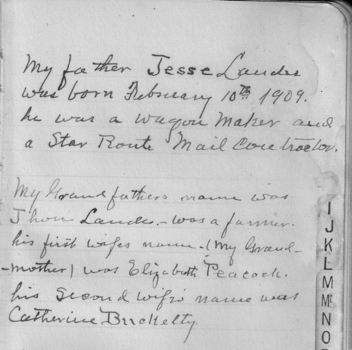 My father Jesse Landes
was born February 10th 1909.
he was a wagon maker and
a Star Route Mail Contractor.
My Grandfathers name was
Thom Landes - was a farmer.
his first wifes name - (My Grand-
-mother) was Elizabeth Peacock.
his second wifes name was
Catherine
I
J
K
L
M
Mc
N
O